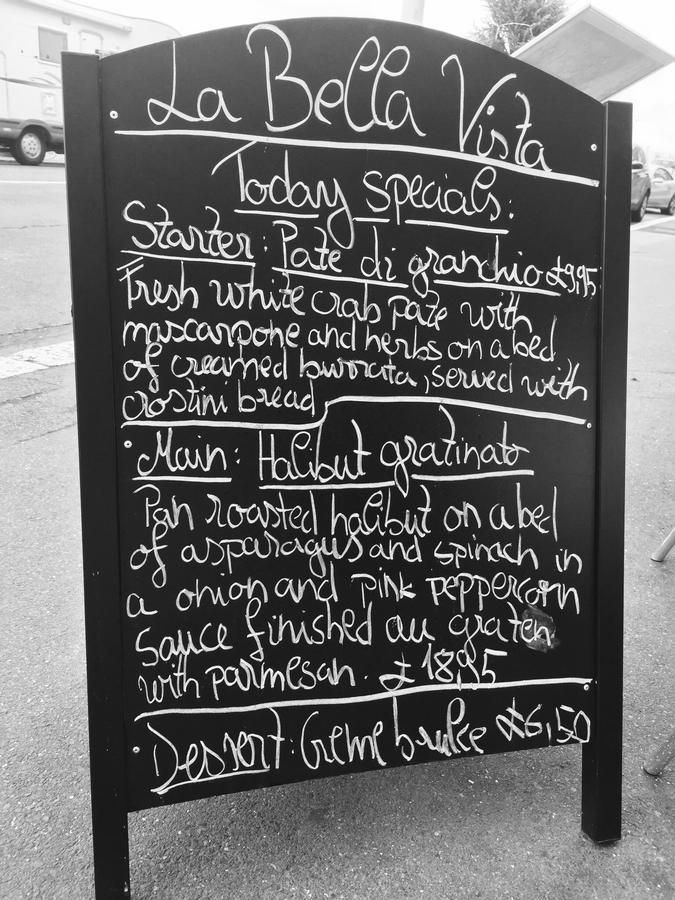 La Bella Vista
Today specials:
Starter: Pate di granchio £9,95
Fresh white crab pate with
mascarpone and herbs on a bed
of creamed burrata, served with
crostini bread
Main: Halibut gratinato
Pan roasted halibut on a bed
of asparagus and spinach in
a onion and pink peppercorn
sauce finished au graten
with parmesan. £18,95
Dessert: Creme brulee £6,50